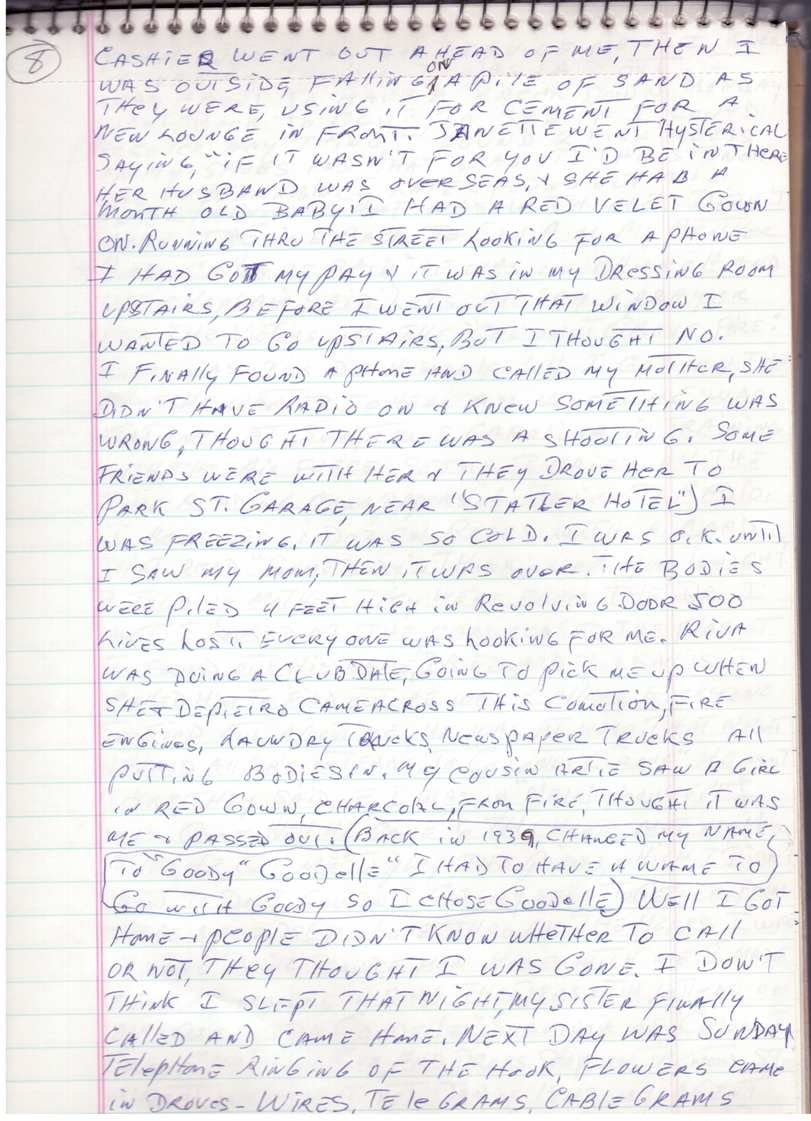 8
CASHIER WENT OUT AHEAD OF ME, THEN I
WAS OUTSIDE, FAlliNG ON A PilE OF SAND AS
THEY WERE, USING IT FOR CEMENT FOR A
NEW LOUNGE IN FRONT. JEANETTE WENT HYSTERICAL
SAYING, "IF IT WASN'T FOR YOU I'D BE IN THERE
HER HUSBAND WAS OVERSEAS, & SHE HAD A
MONTH OLD BABY! I HAD A RED VELET GOWN
ON. RUNNING THRU THE STREET LOOKING FOR A PHONE
I HAD GOTT MY PAY & IT WAS IN MY DRESSING ROOM
UPSTAIRS, BEFORE I WENT OUT THAT WINDOW I
WANTED TO GO UPSTAIRS, BUT I THOUGHT NO.
I FINALLY FOUND A PHONE AND CALLED MY MOTHER, SHE
DIDN'T HAVE RADIO ON & KNEW SOMETHING WAS
WRONG, THOUGHT THERE WAS A SHOOTING. SOME
FRIENDS WERE WITH HER & THEY DROVE HER TO
PARK ST. GARAGE, NEAR "STATLER HOTEL") I
WAS FREEZING. IT WAS SO COLD. I WAS O.K. UNTIL
I SAW MY MOM, THEN IT WAS OVER. THE BODIES
WERE PILED 4 FEET HIGH IN REVOLVING DOOR 500
LIVES LOST!! EVERYONE WAS LOOKING FOR ME. RIVA
WAS DOING A CLUB DATE, GOING TO PICK ME UP WHEN
SHE & DEPIETRO CAME ACROSS THIS COMOTION, FIRE
ENGINES, LAUNDRY TRUCKS, NEWSPAPER TRUCKS All
PUTTING BODIES IN. MY COUSIN ARTIE SAW A GIRL
IN RED GOWN, CHARCOAL, FROM FIRE, THOUGHT IT WAS
ME & PASSED OUT. (BACK IN 1939, CHANGED MY NAME,
TO "GOODY" GOODElle" I HAD TO HAVE A NAME TO
GO WITH GOODY SO I CHOSE GOODElle) WEll I GOT
HOME & PEOPLE DIDN'T KNOW WHETHER TO CAll
OR NOT, THEY THOUGHT I WAS GONE. I DON'T
THINK I SLEPT THAT NIGHT, MY SISTER FINALLY
CAllED AND CAME HOME. NEXT DAY WAS SUNDAY
TELEPHONE RINGING OF THE HOOK, FLOWERS CAME
IN DROVES - WIRES, TELEGRAMS, CABLEGRAMS